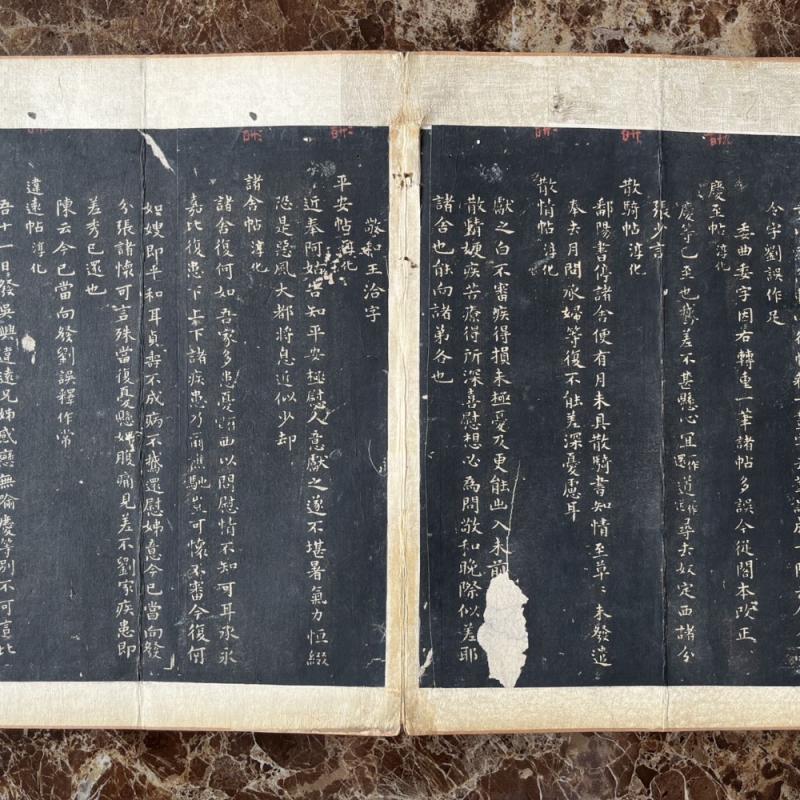 令字劉誤作足
委曲委字因右轉重一筆諸帖多誤今從閣本改正
慶至帖 淳化
慶等已至也鵞差不甚懸心宜還道尋去奴定西諸分
張少言
散騎帖 淳化
鄱陽書停諸舍便有月未具散騎書知情至草〻未發遣
奉去月問承婦等復不能差深憂慮耳
散情帖 淳化
獻之白不審疾得損未極憂及更能出入未前
散騎嫂疾苦瘡得所深喜慰想必為問敬和晚際似差耶
諸舍也能向諸弟各也
敬和王洽字
平安帖 淳化
近奉阿姑告知平安極慰人意獻之遂不堪暑氣力恒綴
恐是惡風大都將息近似少却
諸舍帖 淳化
諸舍復何如吾家多患憂 面以問慰情不知可耳永永
嘉比復患下上下諸疾患乃爾 馳豈可懷不審今復何
如嫂即平和耳貞壽不成病不鵞還慰姊意今已當向發
分張諸懷可言殊當復憂懸娣腹痛見差不劉家疾患即
差秀已還也
陳云今已當向發劉誤釋作常
違遠帖 淳化
吾十一日發吳興違遠兄姊感應無喻慶等別不可言比